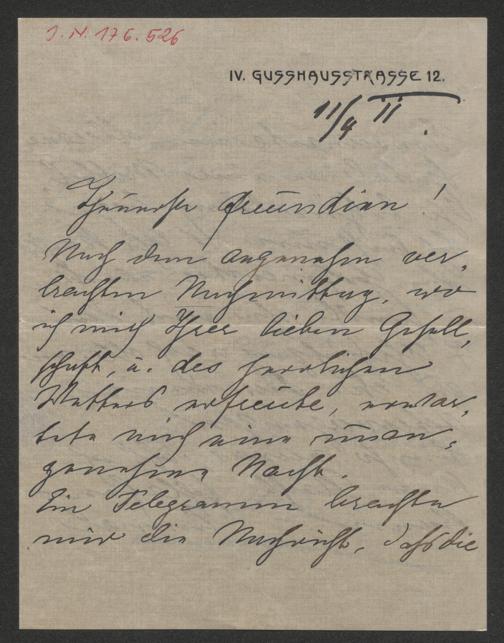 J. N. 176.526
IV. GUSSHAUSSTRASSE 12.
11/4 II.
Theuerste Freundinn!
Nach dem angenehm ver-
brachten Nachmittag, wo
ich mich Ihrer lieben Gesell-
schaft, u. des herrlichen
Wetters erfreute, erwar-
tete mich eine unan-
genehme Nacht.
Ein Telegramm brachte
mir die Nachricht, dass die